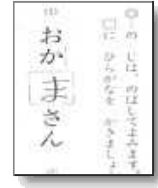 ○の じは、のばしてよみます。
□に ひらがなを かきましょ
(1)
おかまさん